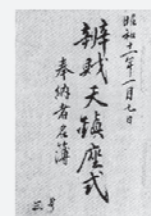 昭和十一年一月七日
辨財天鎮座式
奉納者名簿
三号